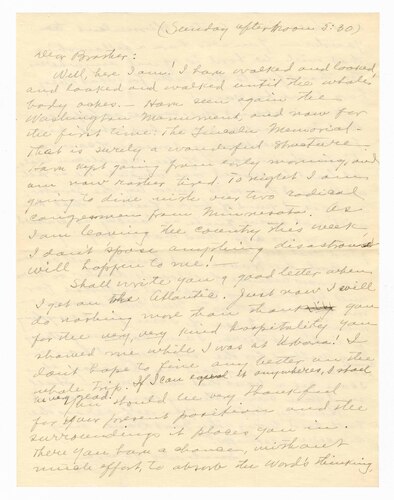 (Sunday afternoon 5:30)
Dear Brother:
Well, here I am! I have walked and looked
and looked and walked until the whole
body aches. — Have seen again the
Washington Monument, and now for
the first time: The Lincoln Memorial —
That is surely a wonderful structure.
Have kept going from early morning, and
am now rather tired. To night I am
going to dine with our two radical
congressmen from Minnesota. As
I am leaving the country this week
I don't spose anything disastrous
will happen to me! —
Shall write you a good letter when
I get on the Atlantic. Just now I will
do nothing more than thank you
for the very, very kind hospitality you
showed me while I was at Urbana! I
don't hope to find any better on the
whole trip. If I can equal it anywhere, I shall
be very glad.
You should be very thankful
for your present position and the
surroundings it places you in.
There you have a chance, without
much effort, to absorb the World's thinking